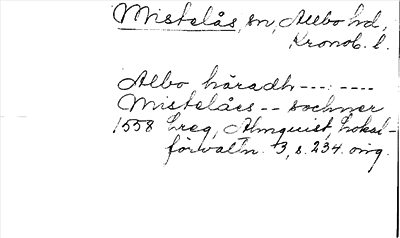 Mistelås, sn, Allbo hd,
Kronob. l.
Albo häradh ---: ----
Mistelåes -- sochner
1558 Lreg, Almquist, Lokal-
förvaltn. 3, s. 234. orig.